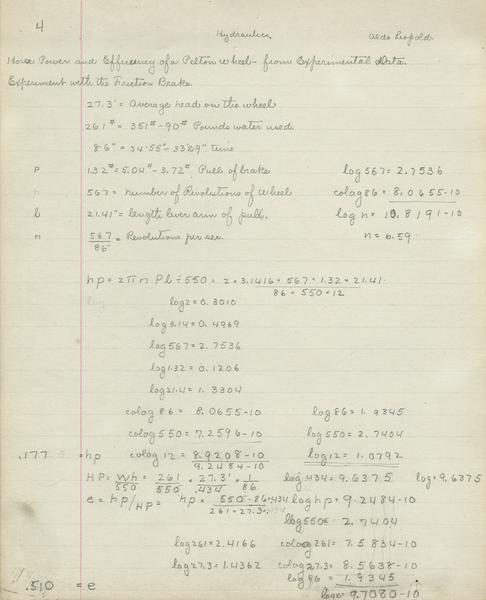 4
Hydraulics.
Aldo Leopold.
Horse Power and Efficiency of a Pelton Wheel - from Experimental Data.
Experiment with the Friction Brake.
27.3' = Average head on the wheel
261# = 351# - 90# Pounds water used.
86" = 34'55" - 33'29" time
P 1.32# = 5.04# - 3.72# Pull of brake log 567 = 2.7536
n 567 = number of Revolutions of Wheel colog 86 = 8.0655-10
b 21.41" = length lever arm of pull. log n = 10.8191-10
n 567/86" = Revolutions per sec. n = 6.59
hp = 2πn Pb ÷ 550 = 2 × 3.1416 × 567 × 1.32 × 21.41 / 86 × 550 × 12
log
log 2 = 0.3010
log 3.14 = 0.4969
log 567 = 2.7536
log 1.32 = 0.1206
log 21.4 = 1.3304
colog 86 = 8.0655-10 log 86 = 1.9345
colog 550 = 7.2596-10 log 550 = 2.7404
.177 = hp colog 12 = 8.9208-10 log 12 = 1.0792
9.2484-10
HP = Wh/550 = 261/550 × 27.3'/.434 × 1/86 log .434 = 9.6375 log = 9.6375
e = hp/HP = hp × 550·86·.434 / 261·27.3 log hp = 9.2484-10
log 550 = 2.7404
log 261 = 2.4166 colog 261 = 7.5834-10
log 27.3 = 1.4362 colog 27.3 = 8.5638-10
log 86 = 1.9345
.510 = e log e = 9.7080-10